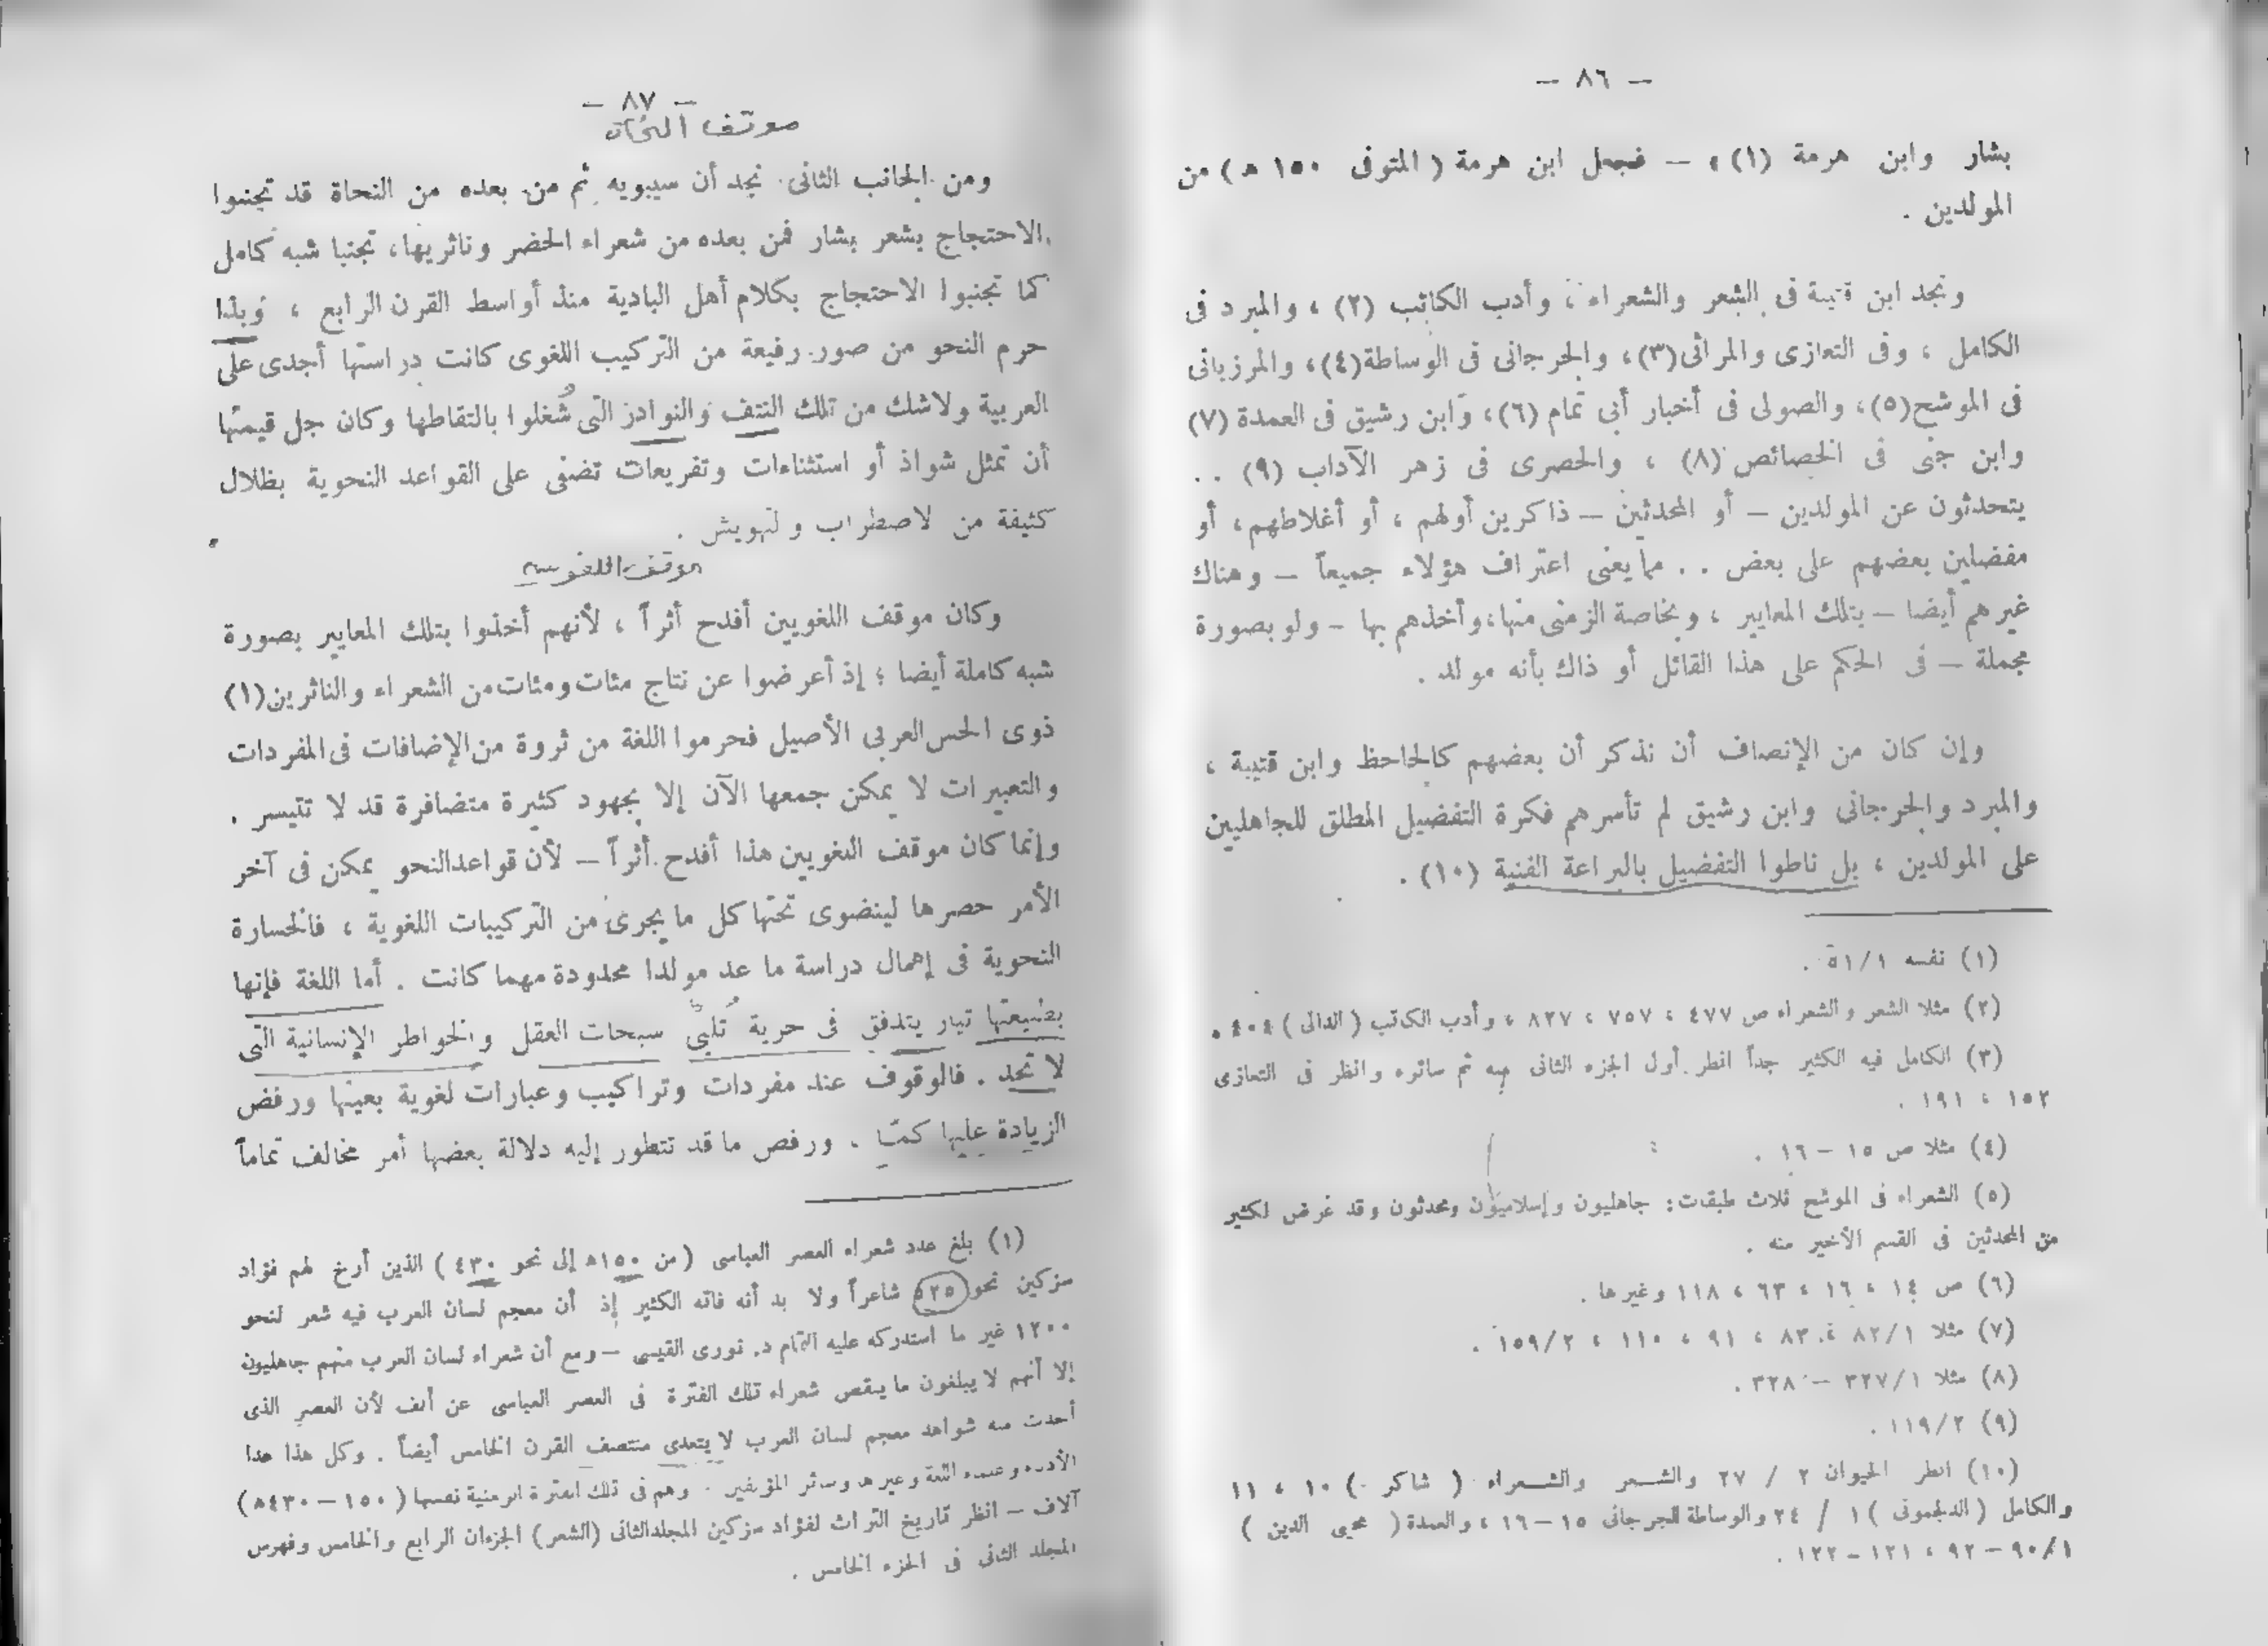 — ٨٦ —
بشار وابن هرمة (١) ، — فجعل ابن هرمة ( المتوفى ١٥٠ ه ) من
المولدين .
ونجد ابن قتيبة فى الشعر والشعراء ، وأدب الكاتب (٢) ، والمبرد فى
الكامل ، وفى التعازى والمراثى(٣)، والجرجانى فى الوساطة(٤)، والمرزبانى
فى الموشح(٥)، والصولى فى أخبار أبى تمام (٦)، وابن رشيق فى العمدة (٧)
وابن جنى فى الخصائص (٨) ، والحصرى فى زهر الآداب (٩) . .
يتحدثون عن المولدين — أو المحدثين — ذاكرين أولهم ، أو أغلاطهم، أو
مفضلين بعضهم على بعض . . مما يعنى اعتراف هؤلاء جميعاً — وهناك
غيرهم أيضا — بتلك المعايير ، وبخاصة الزمنى منها، وأخذهم بها — ولو بصورة
مجملة — فى الحكم على هذا القائل أو ذاك بأنه مولد .
وإن كان من الإنصاف أن نذكر أن بعضهم كالجاحظ وابن قتيبة ،
والمبرد والجرجانى وابن رشيق لم تأسرهم فكرة التفضيل المطلق للجاهليين
على المولدين ، بل ناطوا التفضيل بالبراعة الفنية (١٠) .
(١) نفسه ٥١/١ .
(٢) مثلا الشعر والشعراء ص ٤٧٧ ، ٧٥٧ ، ٨٢٧ ، وأدب الكاتب ( الدالى ) ٤٠٤ .
(٣) الكامل فيه الكثير جداً انظر أول الجزء الثانى منه ثم سائره وانظر فى التعازى
١٥٢ ، ١٩١ .
(٤) مثلا ص ١٥ — ١٦ .
(٥) الشعراء فى الموشح ثلاث طبقات : جاهليون وإسلاميون ومحدثون وقد عرض لكثير
من المحدثين فى القسم الأخير منه .
(٦) ص ١٤ ، ١٦ ، ٦٣ ، ١١٨ وغيرها .
(٧) مثلا ٨٢/١ ، ٨٣ ، ٩١ ، ١١٠ ، ١٥٩/٢ .
(٨) مثلا ٣٢٧/١ — ٣٢٨ .
(٩) ١١٩/٢ .
(١٠) انظر الحيوان ٢ / ٢٧ والشعر والشعراء ( شاكر ) ١٠ ، ١١
والكامل ( الدلجمونى ) ١ / ٢٤ والوساطة للجرجانى ١٥—١٦ ، والعمدة ( محيى الدين )
٩٠/١ — ٩٢ ، ١٢١ — ١٢٢ .
— ٨٧ —
موقف النحاة
ومن الجانب الثانى نجد أن سيبويه ثم من بعده من النحاة قد تجنبوا
الاحتجاج بشعر بشار فمن بعده من شعراء الحضر وناثريها، تجنبا شبه كامل
كما تجنبوا الاحتجاج بكلام أهل البادية منذ أواسط القرن الرابع ، وبذا
حرم النحو من صور رفيعة من التركيب اللغوى كانت دراستها أجدى على
العربية ولاشك من تلك النتف والنوادر التى شُغلوا بالتقاطها وكان جل قيمتها
أن تمثل شواذ أو استثناءات وتفريعات تضفى على القواعد النحوية بظلال
كثيفة من الاضطراب والتهويش .
موقف اللغويين
وكان موقف اللغويين أفدح أثراً ، لأنهم أخذوا بتلك المعايير بصورة
شبه كاملة أيضا ؛ إذ أعرضوا عن نتاج مئات ومئات من الشعراء والناثرين(١)
ذوى الحس العربى الأصيل فحرموا اللغة من ثروة من الإضافات فى المفردات
والتعبيرات لا يمكن جمعها الآن إلا بجهود كثيرة متضافرة قد لا تتيسر .
وإنما كان موقف اللغويين هذا أفدح أثراً — لأن قواعد النحو يمكن فى آخر
الأمر حصرها لينضوى تحتها كل ما يجرى من التركيبات اللغوية ، فالخسارة
النحوية فى إهمال دراسة ما عد مولدا محدودة مهما كانت . أما اللغة فإنها
بطبيعتها تيار يتدفق فى حرية تُلبىّ سبحات العقل والخواطر الإنسانية التى
لا تحد . فالوقوف عند مفردات وتراكيب وعبارات لغوية بعينها ورفض
الزيادة عليها كمّـا . ورفض ما قد تتطور إليه دلالة بعضها أمر مخالف تماماً
(١) بلغ عدد شعراء العصر العباسى (من ١٥٠ه إلى نحو ٤٣٠ ) الذين أرخ لهم فؤاد
سزكين نحو ٥٢٥ شاعراً ولا بد أنه فاته الكثير إذ أن معجم لسان العرب فيه شعر لنحو
١٢٠٠ غير ما استدركه عليه التمام د. نورى القيسى — ومع أن شعراء لسان العرب منهم جاهليون
إلا أنهم لا يبلغون ما ينقص شعراء تلك الفترة فى العصر العباسى عن ألف لأن العصر الذى
أخذت منه شواهد معجم لسان العرب لا يتعدى منتصف القرن الخامس أيضاً . وكل هذا عدا
الأدباء وعلماء اللغة وغيرها وسائر المؤلفين . وهم فى تلك الفترة الزمنية نفسها ( ١٥٠ — ٤٣٠ه)
آلاف — انظر تاريخ التراث لفؤاد سزكين المجلد الثانى (الشعر) الجزءان الرابع والخامس وفهرس
المجلد الثانى فى الجزء الخامس .